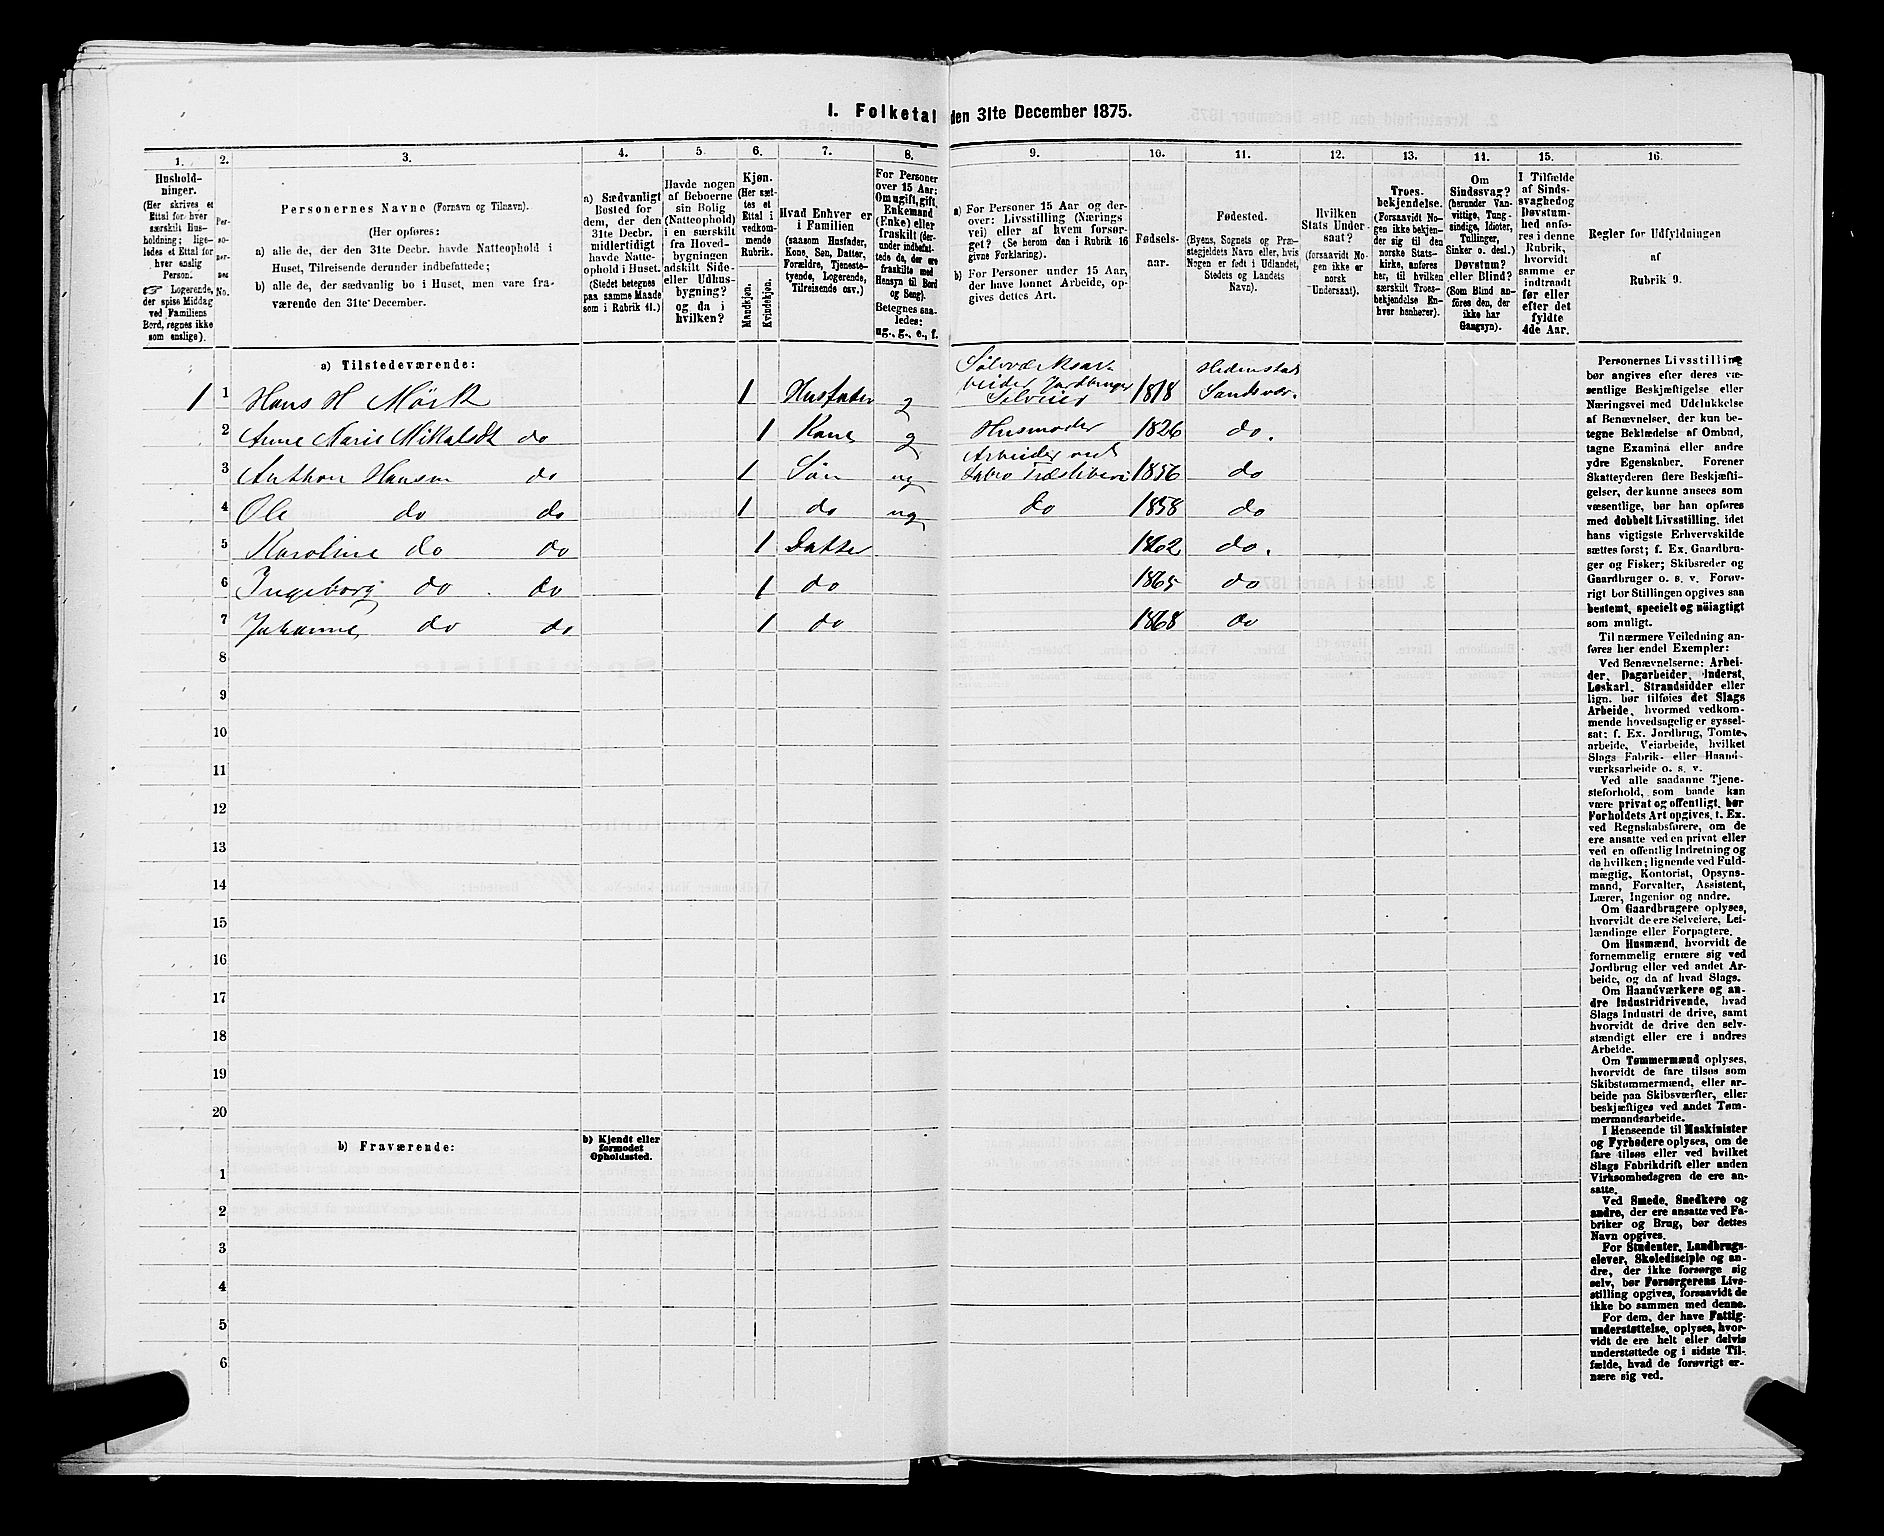 I. Folketal den 31te December 1875.
1. 2. 3. 4. 5. 6. 7. 8. 9. 10. 11. 12. 13. 14. 15. 16.
Hushold-
ninger.
(Her skrives et
Ettal for hver
særskilt Hus-
holdning; lige-
ledes et Ettal for
hver enslig
Person.
☞ Logerende,
der spise Middag
ved Familiens
Bord, regnes ikke
som enslige).
Per-
so-
ner-
nes
No.
Personernes Navne (Fornavn og Tilnavn).
(Her opføres:
a) alle de, der den 31te Decbr. havde Natteophold i
Huset, Tilreisende derunder indbefattede;
b) alle de, der sædvanlig bo i Huset, men vare fra-
værende den 31te December.
a) Sædvanligt
Bosted for
dem, der den
31te Decbr.
midlertidigt
havde Natte-
ophold i Huset.
(Stedet betegnes
paa samme Maade
som i Rubrik 11.)
Havde nogen
af Beboerne
sin Bolig
(Natteophold)
i en særskilt
fra Hoved-
bygningen
adskilt Side-
eller Udhus-
bygning?
og da i
hvilken?
Kjøn.
(Her sæt-
tes et
Ettal i
vedkom-
mende
Rubrik.
Mandkjøn.
Kvindekjøn.
Hvad Enhver er
i Familien
(saasom Husfader,
Kone, Søn, Datter,
Forældre, Tjeneste-
tyende, Logerende,
Tilreisende osv.)
For Personer
over 15 Aar:
Om ugift, gift,
Enkemand
(Enke) eller
fraskilt (der-
under indbefat-
tede de, der ere
fraskilte med
Hensyn til Bord
og Seng).
Betegnes saa-
ledes:
ug., g., e., f.
a) For Personer 15 Aar og der-
over: Livsstilling (Nærings
vei) eller af hvem forsør-
get? (Se herom den i Rubrik 16
givne Forklaring).
b) For Personer under 15 Aar,
der have lønnet Arbeide, op-
gives dettes Art.
Fødsels-
aar.
Fødested.
(Byens, Sognets og Præ-
stegjeldets Navn eller, hvis
Nogen er født i Udlandet,
Stedets og Landets
Navn).
Hvilken
Stats Under-
saat?
(forsaavidt No-
gen ikke er
norsk
Undersaat).
Troes-
bekjendelse.
(Forsaavidt No-
gen ikke bekjen-
der sig til den
norske Stats-
kirke, anføres
her, til hvilken
særskilt Troes-
bekjendelse En-
hver henhører).
Om
Sindssvag?
(herunder Van-
vittige, Tung-
sindige, Idioter,
Tullinger,
Sinker o. desl.)
Døvstum?
eller Blind?
(Som Blind an-
føres den, der
ikke har
Gangsyn).
I Tilfælde
af Sinds-
svaghed og
Døvstum-
hed anfø-
res i denne
Rubrik,
hvorvidt
samme er
indtraadt
før eller
efter det
fyldte
4de Aar.
Regler for Udfyldningen
af
Rubrik 9.
a) Tilstedeværende:
1 1 Hans H Mörk 1 Husfader g Sölvværksar-
beider Jordbruger
Selveier 1818 Hedenstad
Sandsvær.
2 Anne Marie Mikalsdt do 1 Kone g Husmoder 1826 do.
3 Anthon Hansen do 1 Sön ug Arbeider ved
Labro Træsliberi 1856 do
4 Ole do do 1 do ug do 1858 do
5 Karoline do do 1 Datter 1862 do.
6 Ingeborg do do 1 do 1865 do
7 Johanne do do 1 do 1868 do
8
9
10
11
12
13
14
15
16
17
18
19
20
b) Fraværende:
b) Kjendt eller
formodet
Opholdssted.
1
2
3
4
5
6
Personernes Livsstilling
bør angives efter deres væ-
sentlige Beskjæftigelse eller
Næringsvei med Udelukkelse
af Benævnelser, der kun be-
tegne Beklædelse af Ombud,
tagne Examina eller andre
ydre Egenskaber. Forener
Skatteyderen flere Beskjæfti-
gelser, der kunne ansees som
væsentlige, bør han opføres
med dobbelt Livsstilling, idet
hans vigtigste Erhvervskilde
sættes først; f. Ex. Gaardbru-
ger og Fisker; Skibsreder og
Gaardbruger o. s. v. Forøv-
rigt bør Stillingen opgives saa
bestemt, specielt og nøiagtigt
som muligt.
Til nærmere Veiledning an-
føres her endel Exempler:
Ved Benævnelserne: Arbei-
der, Dagarbeider, Inderst,
Løskarl, Strandsidder eller
lign. bør tilføies det Slags
Arbeide, hvormed vedkom-
mende hovedsagelig er syssel-
sat: f. Ex. Jordbrug, Tomte-
arbeide, Veiarbeide, hvilket
Slags Fabrik- eller Haand-
værksarbeide o. s. v.
Ved alle saadanne Tjene-
steforhold, som baade kan
være privat og offentligt, bør
Forholdets Art opgives, t. Ex.
ved Regnskabsførere, om de
ere ansatte ved en privat eller
ved en offentlig Indretning og
da hvilken; lignende ved Fuld-
mægtig, Kontorist, Opsyns-
mand, Forvalter, Assistent,
Lærer, Ingeniør og andre.
Om Gaardbrugere oplyses,
hvorvidt de ere Selveiere, Lei-
lændinge eller Forpagtere.
Om Husmænd, hvorvidt de
fornemmelig ernære sig ved
Jordbrug eller ved andet Ar-
beide, og da af hvad Slags.
Om Haandværkere og an-
dre Industridrivende, hvad
Slags Industri de drive, samt
hvorvidt de drive den selv-
stændigt eller ere i andres
Arbeide.
Om Tømmermænd oplyses,
hvorvidt de fare tilsøs som
Skibstømmermænd, eller ar-
beide paa Skibsværfter, eller
beskjæftiges ved andet Tøm-
mermandsarbeide.
I Henseende til Maskinister
og Fyrbødere oplyses, om de
fare tilsøs eller ved hvilket
Slags Fabrikdrift eller anden
Virksomhedsgren de ere an-
satte.
Ved Smede, Snedkere og
andre, der ere ansatte ved Fa-
briker og Brug, bør dettes
Navn opgives.
For Studenter, Landbrugs-
elever, Skoledisciple og an-
dre, der ikke forsørge sig
selv, bør Forsørgerens Livs-
stilling opgives, forsaavidt de
ikke bo sammen med denne.
For dem, der have Fattig-
understøttelse, oplyses, hvor-
vidt de ere helt eller delvis
understøttede og i sidste Til-
fælde, hvad de forøvrigt er-
nære sig ved.